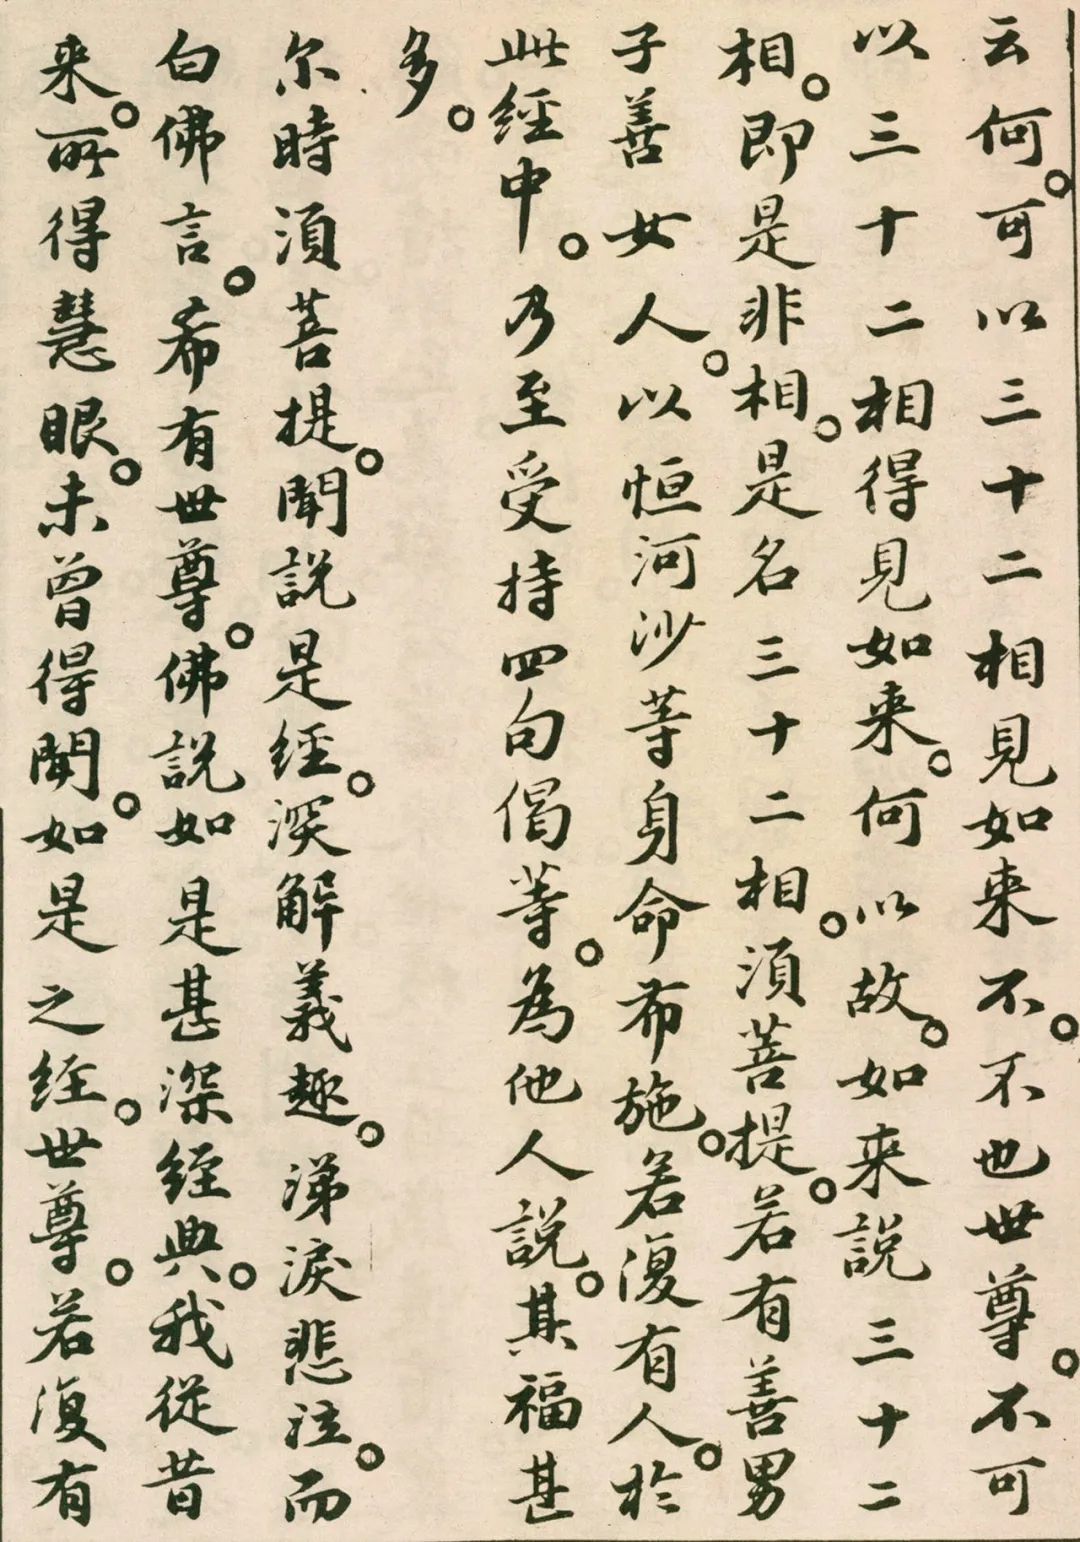 云何。可以三十二相見如来不。不也世尊。不可
以三十二相得見如来。何以故。如来説三十二
相。即是非相。是名三十二相。須菩提。若有善男
子善女人。以恒河沙等身命布施。若復有人。於
此經中。乃至受持四句偈等。為他人説。其福甚
多。
尔時須菩提。聞説是经。深解義趣。涕淚悲泣。而
白佛言。希有世尊。佛説如是甚深經典。我從昔
来。所得慧眼。未曾得聞。如是之经。世尊。若復有